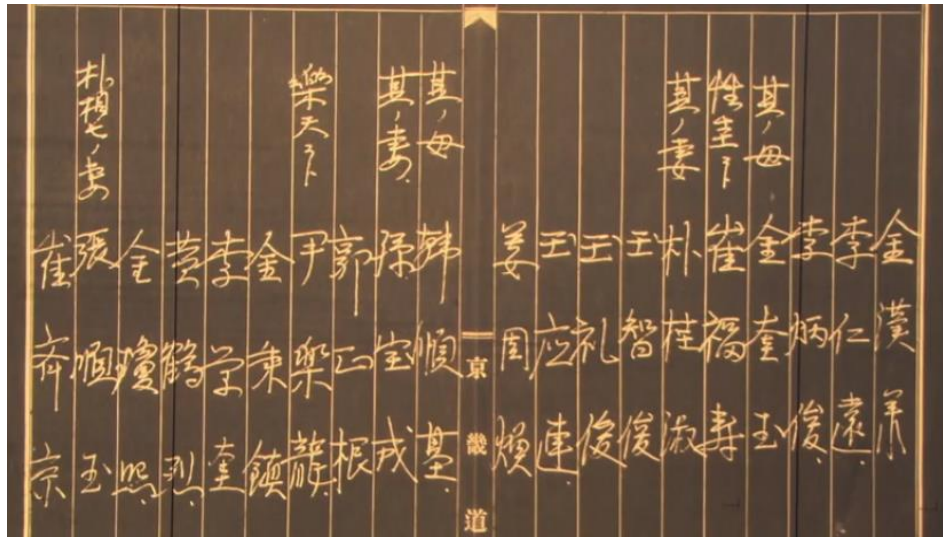 金漢羊
李仁遠
李炳俊
其ノ母 金奎玉
性圭ヲ下 崔福寿
其ノ妻 朴桂淑
王智俊
王礼俊
王応連
姜周煥
京畿道
其ノ母 韓順基
其ノ妻 宝成
郭正根
楽天ヲ下 尹楽龍
金秉鎮
李学奎
黄鶴烈
金瓊照
朴楨七ノ妻 張順玉
崔斉京